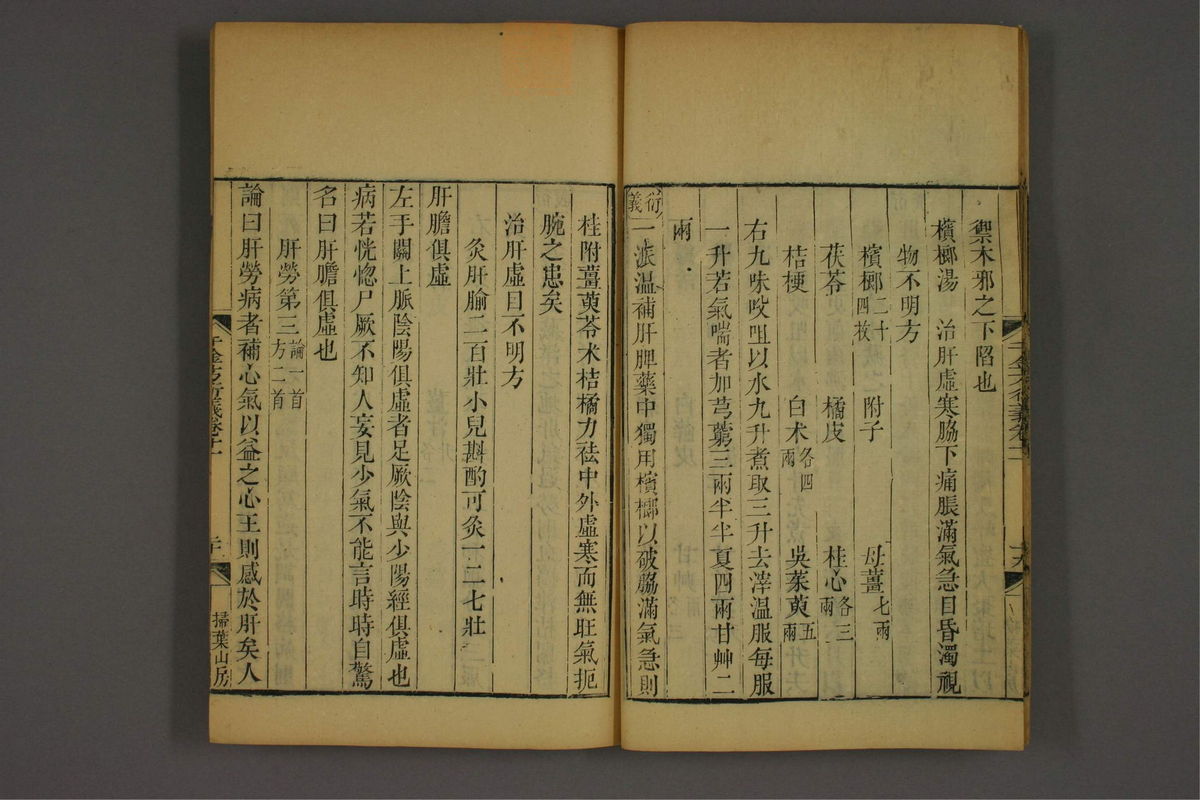 禦木邪之下陷也
檳榔湯　治肝虛寒脇下痛脹滿氣急目昏濁視
物不明方
檳榔二十四枚　附子　母薑七兩
茯苓　橘皮　桂心各三兩
桔梗　白术各四兩　吳茱萸五兩
右九味㕮咀以水九升煮取三升去滓溫服每服
一升若氣喘者加芎藭三兩半半夏四兩甘艸二
兩
衍義　一派溫補肝脾藥中獨用檳榔以破脇滿氣急則
桂附薑萸苓术桔橘力祛中外虛寒而無旺氣扼
腕之患矣
治肝虛目不明方
灸肝腧二百壯小兒斟酌可灸一二七壯
肝膽俱虛
左手關上脈陰陽俱虛者足厥陰與少陽經俱虛也
病若恍惚尸厥不知人妄見少氣不能言時時自驚
名曰肝膽俱虛也
肝勞第三論一首方二首
論曰肝勞病者補心氣以益之心王則感於肝矣人
千金方衍義卷十一
掃葉山房